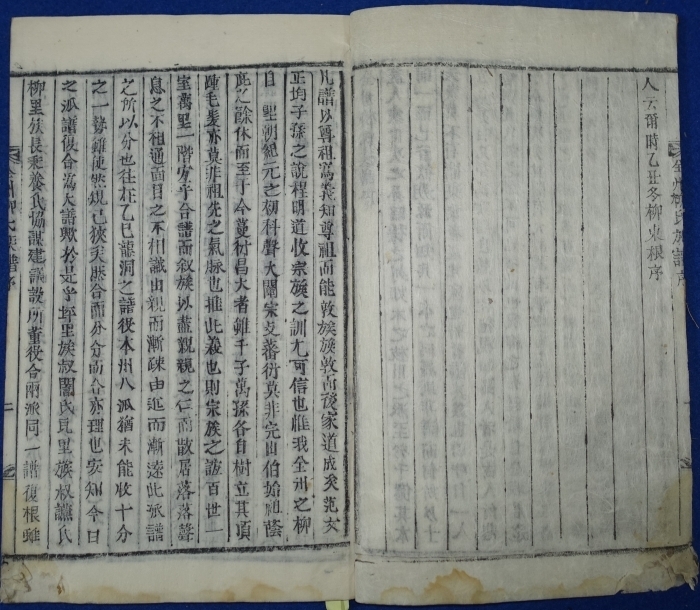 人云爾時乙丑冬柳東根序
凡譜以尊祖爲義知尊祖而能敦族族敦而後家道成矣范文
正均子孫之說程明道收宗族之訓尤可信也惟我全州之柳
自 聖朝紀元之初科聲大闡宗支蕃衍莫非完山伯始祖蔭
此之餘休而至于今蔓衍昌大者雖千子萬孫各自樹立其頂
踵毛髮亦莫非祖先之氣脉也推此義也則宗族之誼百世一
室萬里一階安乎合譜而敘族以盡親親之仁而散居落落聲
息之不相通面目之不相識由親而漸疎由近而漸遠此派譜
之所以分也往在乙巳龍洞之譜役本州八派猶未能收十分
之一勢雖使然規已狹矣歷合而分分而合亦理也安知今日
之派譜復合爲大譜歟於是乎坪里族叔閣氏見里族叔讌氏
柳里族長秉養氏協謀建議設所董役合兩派同一譜復根雖
全州柳氏族譜序
二